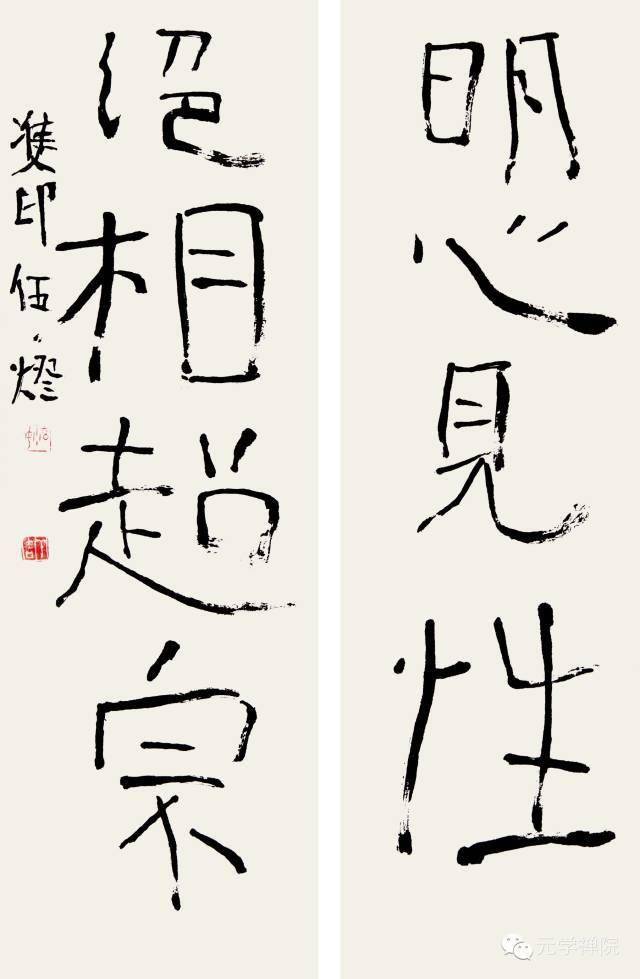 明心見性
絕相超宗
雙印伍燈
元学禅院